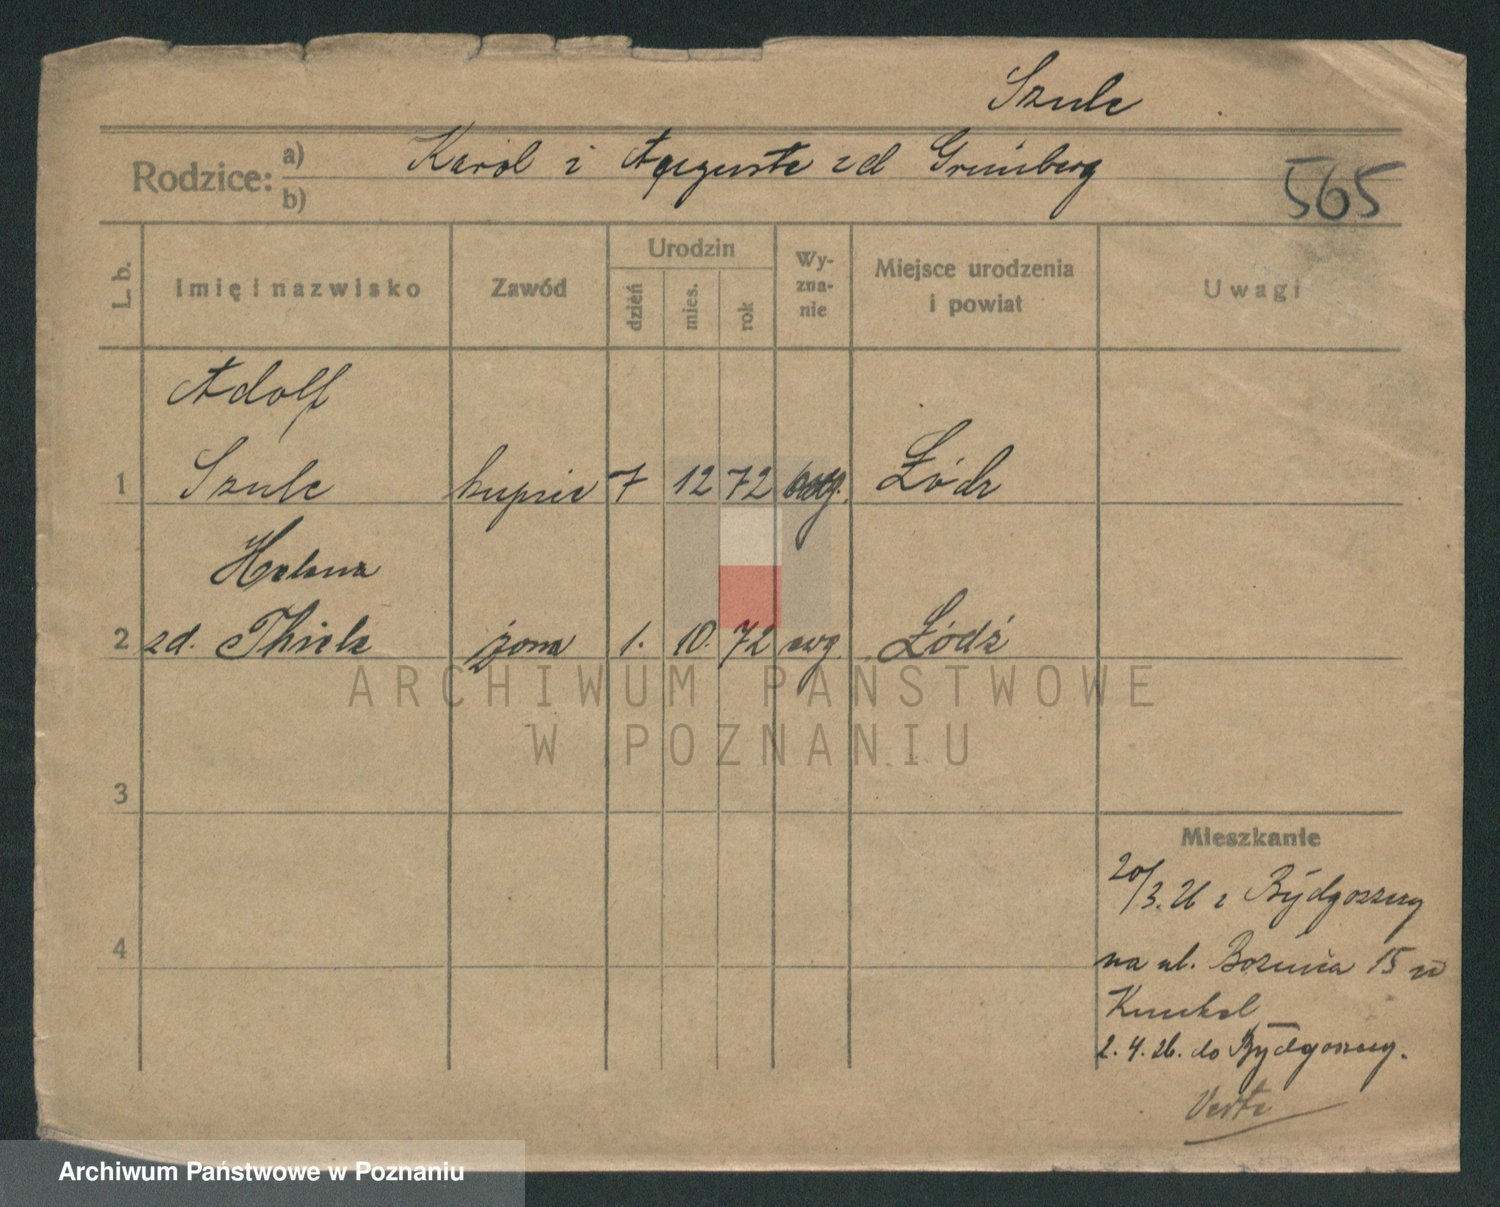 Szulc
Rodzice: a) Karol i Auguste zd Grünberg
b)
565
L. b. Imię i nazwisko Zawód Urodzin dzień mies. rok Wy-zna-nie Miejsce urodzenia i powiat Uwagi
Adolf
1 Szulc kupiec 7 12 72 Łódz
Helena
2 zd. Thiele żona 1. 10. 72 ewg. Łódź
ARCHIWUM PAŃSTWOWE
W POZNANIU
3
Mieszkanie
20/3.26 z Bydgoszczy
4
na ul. 15
Kunkel
2.4.26. do Bydgoszczy.
Verte
Archiwum Państwowe w Poznaniu